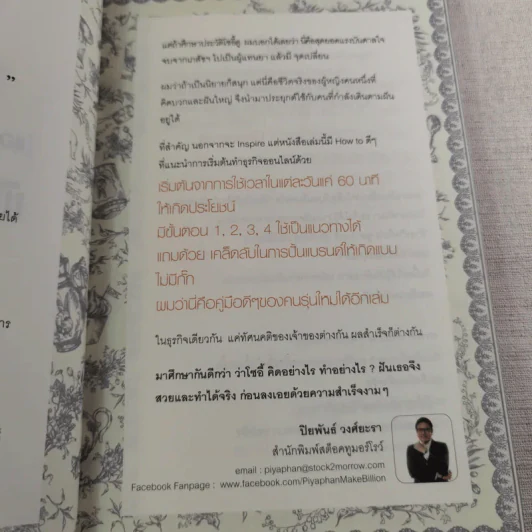 ”
แต่ถ้าศึกษาประวัติโซอี้ดู ผมบอกได้เลยว่า นี่คือสุดยอดแรงบันดาลใจ
จบจากเภสัชฯ ไปเป็นผู้แทนยา แล้วมี จุดเปลี่ยน
ผมว่าถ้าเป็นนิยายก็สนุก แต่นี่คือชีวิตจริงของผู้หญิงคนหนึ่งที่
คิดบวกและฝันใหญ่ จึงนำมาประยุกต์ใช้กับคนที่กำลังเดินตามฝัน
อยู่ได้
ที่สำคัญ นอกจากจะ Inspire แต่หนังสือเล่มนี้มี How to ดีๆ
ที่แนะนำการเริ่มต้นทำธุรกิจออนไลน์ด้วย
เริ่มต้นจากการใช้เวลาในแต่ละวันแค่ 60 นาที
ให้เกิดประโยชน์
มีขั้นตอน 1, 2, 3, 4 ใช้เป็นแนวทางได้
แถมด้วย เคล็ดลับในการปั้นแบรนด์ให้เกิดแบบ
ไม่มีกั๊ก
ผมว่านี่คือคู่มือดีๆของคนรุ่นใหม่ได้อีกเล่ม
ในธุรกิจเดียวกัน แค่ทัศนคติของเจ้าของต่างกัน ผลสำเร็จก็ต่างกัน
มาศึกษากันดีกว่า ว่าโซอี้ คิดอย่างไร ทำอย่างไร ? ฝันเธอจึง
สวยและทำได้จริง ก่อนลงเอยด้วยความสำเร็จงามๆ
ปิยพันธ์ วงศ์ยะรา
สำนักพิมพ์สต็อคทูมอร์โรว์
email : piyaphan@stock2morrow.com
Facebook Fanpage : www.facebook.com/PiyaphanMakeBillion